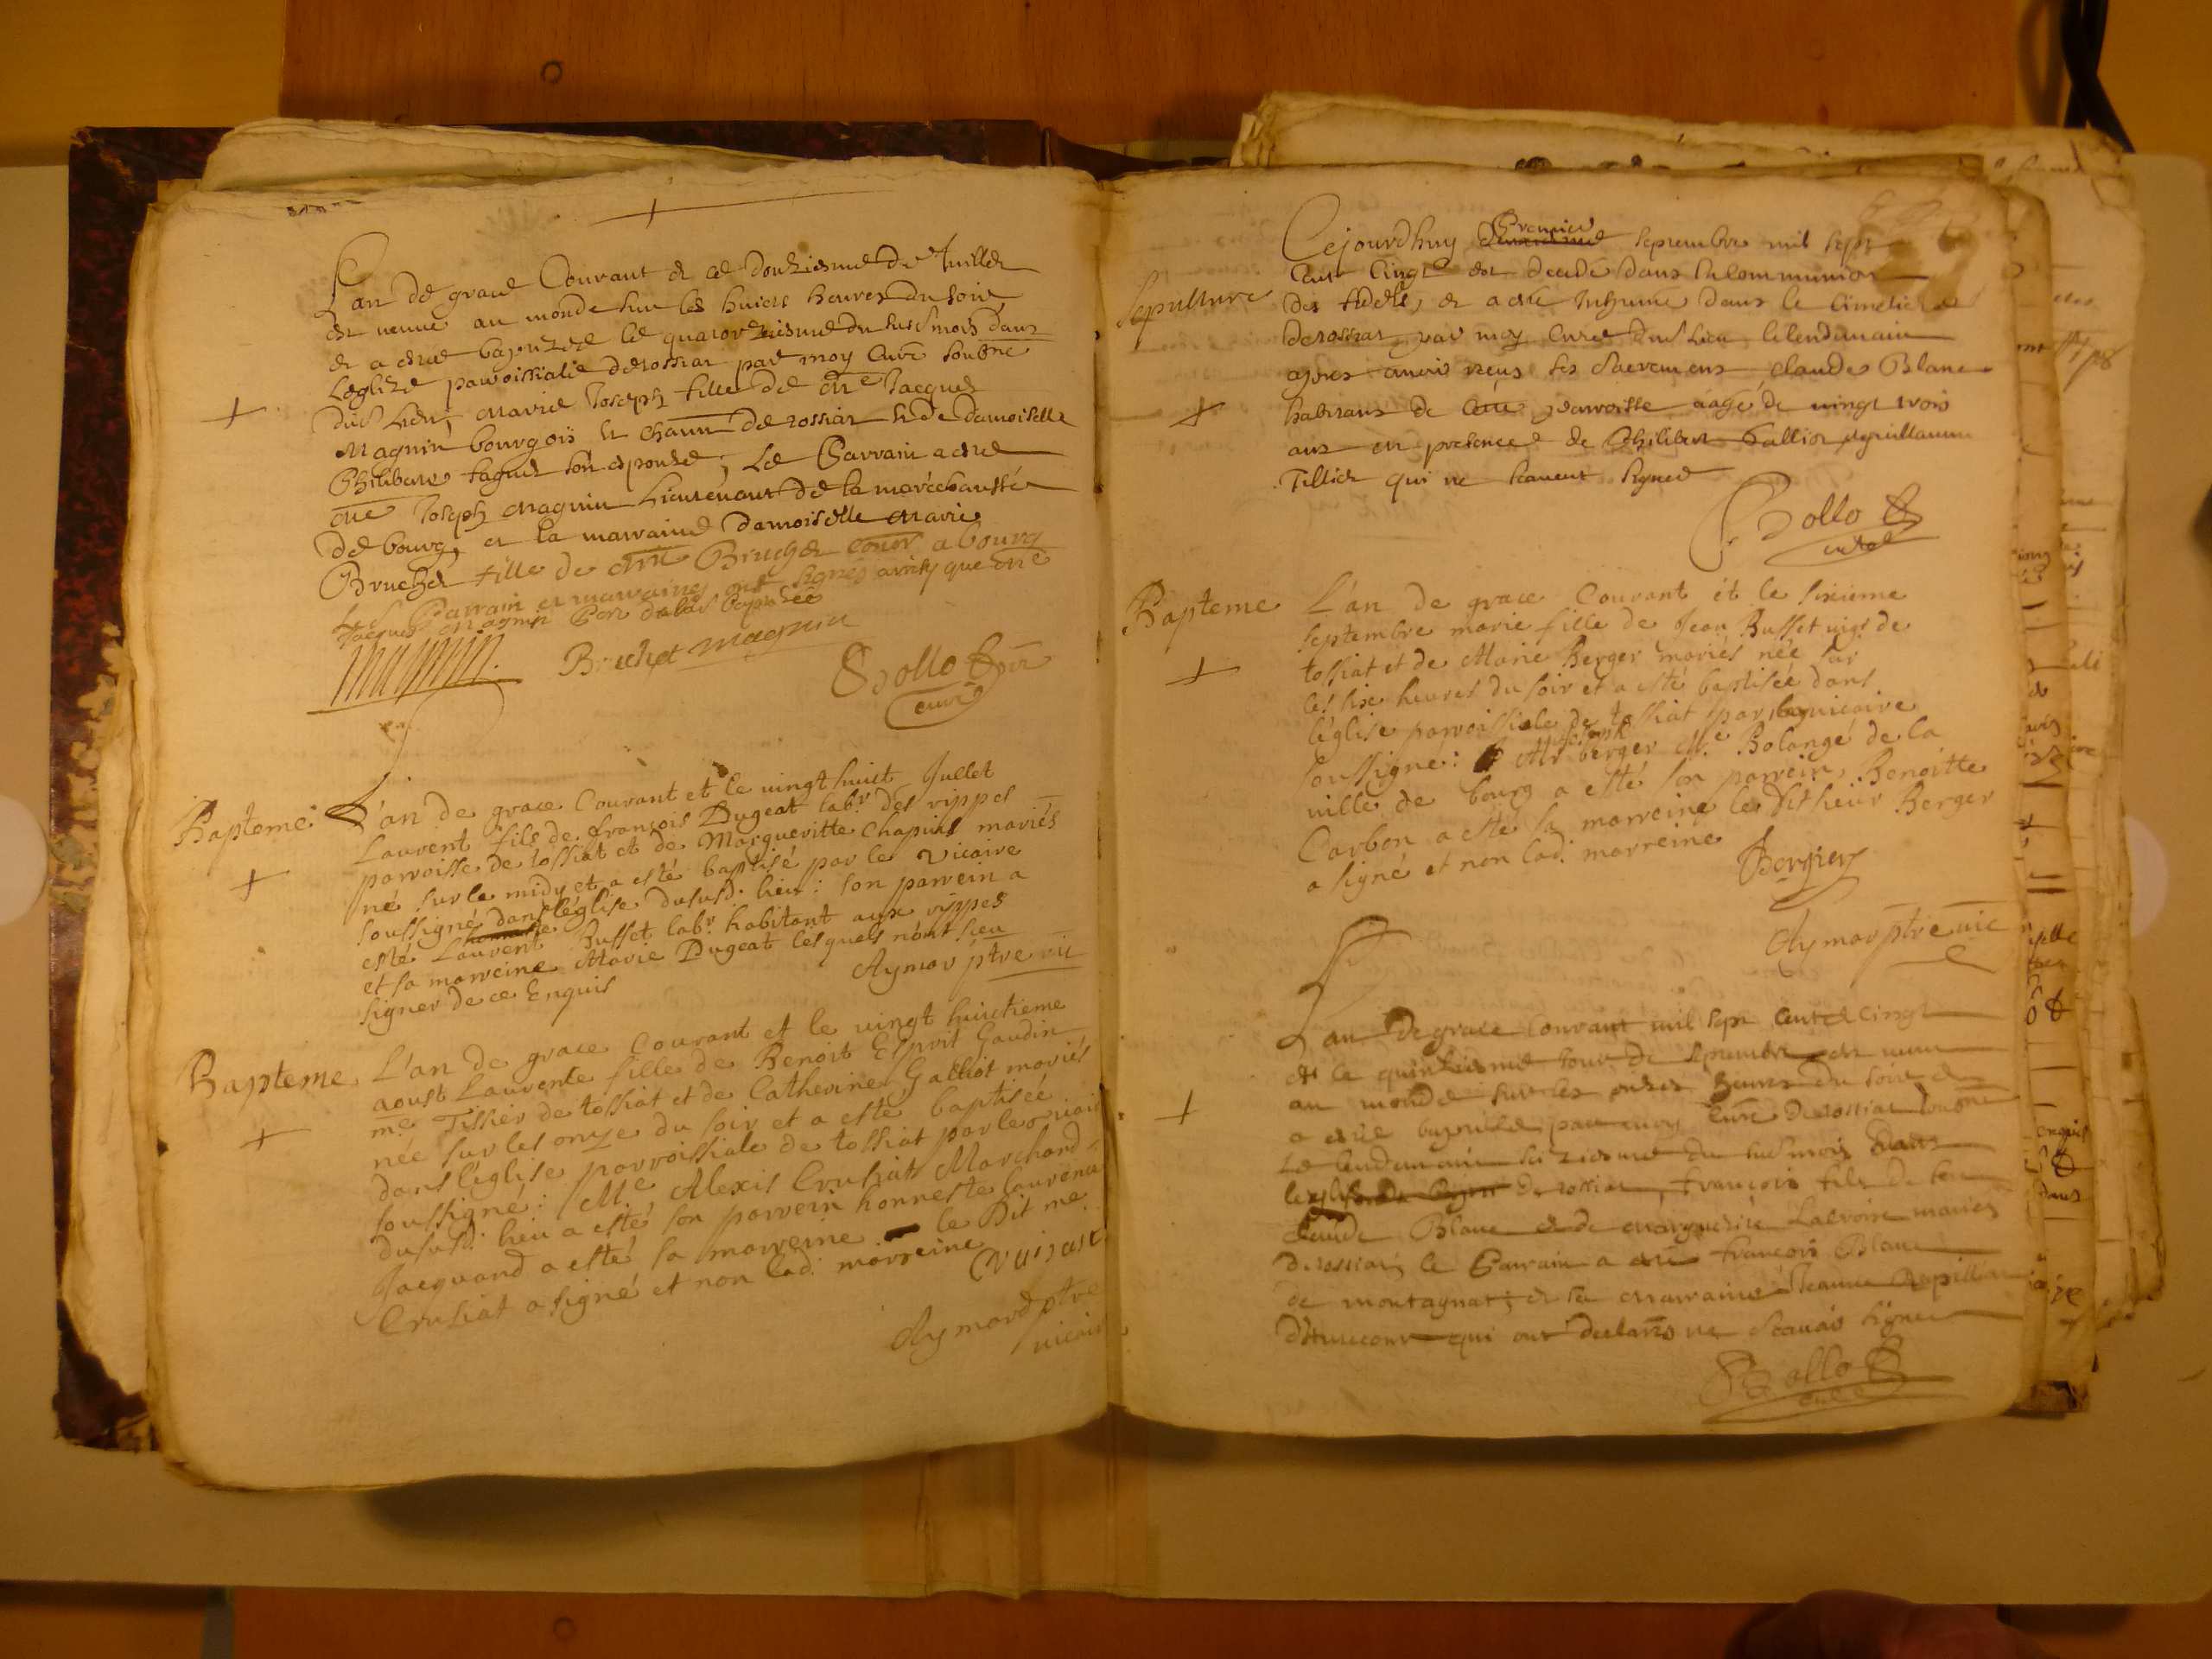 L'an de grace Courant et ce douziesme de Juillet
est venue au monde sur les huict heures du soir,
et a esté baptizée le quatorziesme du susd mois dans
Leglize parroissialle de tossiat par moy curé soubné
dud Lieu, Marie Joseph fille de Mre Jacques
Magnin bourgois et de tossiat et de damoiselle
Philiberte son espouse; Le Parrain a esté
Mre Joseph Magnin Lieutenant de la marechaussée
de bourg, et la marraine damoiselle Marie
Bruchet fille de Mre Bruchet a bourg
Les Parrain et marraine ont signés ainsy que Mre
Jacques Magnin Pere de la baptizée
magnin
Bruchet magnin
Bollo
curé
Bapteme
L'an de grace Courant et le vingt huict Jullet
Laurent fils de françois Dugeat labr des rippes
parroisse de tossiat et de Margueritte Chapuis mariés
né sur le midy et a esté baptisé par le vicaire
soussigné dans l'église dususd: lieu: son parrein a
esté Laurent Busset labr habitant aux rippes
et sa marreine Marie Dugeat lesquels n'ont sceu
signer de ce Enquis
Aymar ptre vic
Bapteme
L'an de grace Courant et le vingt huictieme
aoust Laurente fille de Benoit Esprit Gaudin
me Tissier de tossiat et de Catherine Galliot mariés
née sur les onze du soir et a esté baptisée
dans l'église parroissiale de tossiat par le vicair
soussigné: Me Alexis Crusiat Marchand
dususd: lieu a esté son parrein honneste laurence
Jacquand a esté sa marreine le Dit me
Crusiat a signé et non lad: marreine
Aymard ptre
vicair
Sepulture
Cejourdhuy Premier septembre mil sept
Cent Cinq est decedé dans la Communion
des fideles, et a esté Inhumé dans le Cimetiere
de tossiat par moy Curé dud Lieu le lendemain
apres avoir receus les Sacremens claude Blanc
habitant de cette parroisse aagé de vingt trois
ans en presence de Philibert Gallion
Tillier qui ne scavent signer
Bollo
curé
Bapteme
L'an de grace Courant et le sixieme
septembre marie fille de Jean Busset vigr de
tossiat et de Marie Berger mariés née sur
les six heures du soir et a esté baptisée dans
l'église parroissiale de tossiat par le vicaire
soussigné: Mr Joseph berger Me Bolangé de la
ville de bourg a esté son parrein, Benoitte
Carbon a esté sa marreine le Dit sieur Berger
a signé et non lad: marreine
Berger
Aymar ptre vic
L'an de grace Courant mil sept cent et cinq
et le quinziesme Jour de septembre est venu
au monde sur les onzes heures du soir et
a esté baptizé par moy Curé de tossiat soubné
Le lendemain seiziesme du susd mois dans
leglise de tossiat, françois fils de feu
Claude Blanc et de Margueritte Lacroix mariés
de tossiat, le Parrain a esté françois Blanc
de montagnat; et la Marraine Jeanne
qui ont declarés ne scavoir signer
Bollo
curé